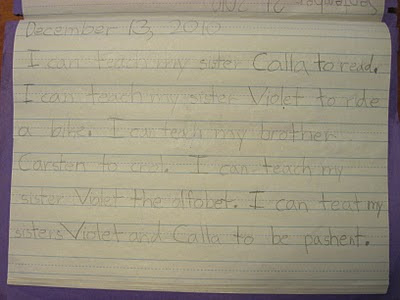 December 13, 2010
I can teach my sister Calla to read.
I can teach my sister Violet to ride
a bike. I can teach my brother
Carsten to cral. I can teach my
sister Violet the alfobet. I can teat my
sisters Violet and Calla to be pashent.